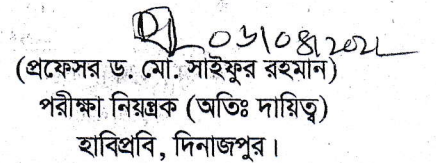 03/08/2021
(প্রফেসর ড. মো. সাইফুর রহমান)
পরীক্ষা নিয়ন্ত্রক (অতিঃ দায়িত্ব)
হাবিপ্রবি, দিনাজপুর।